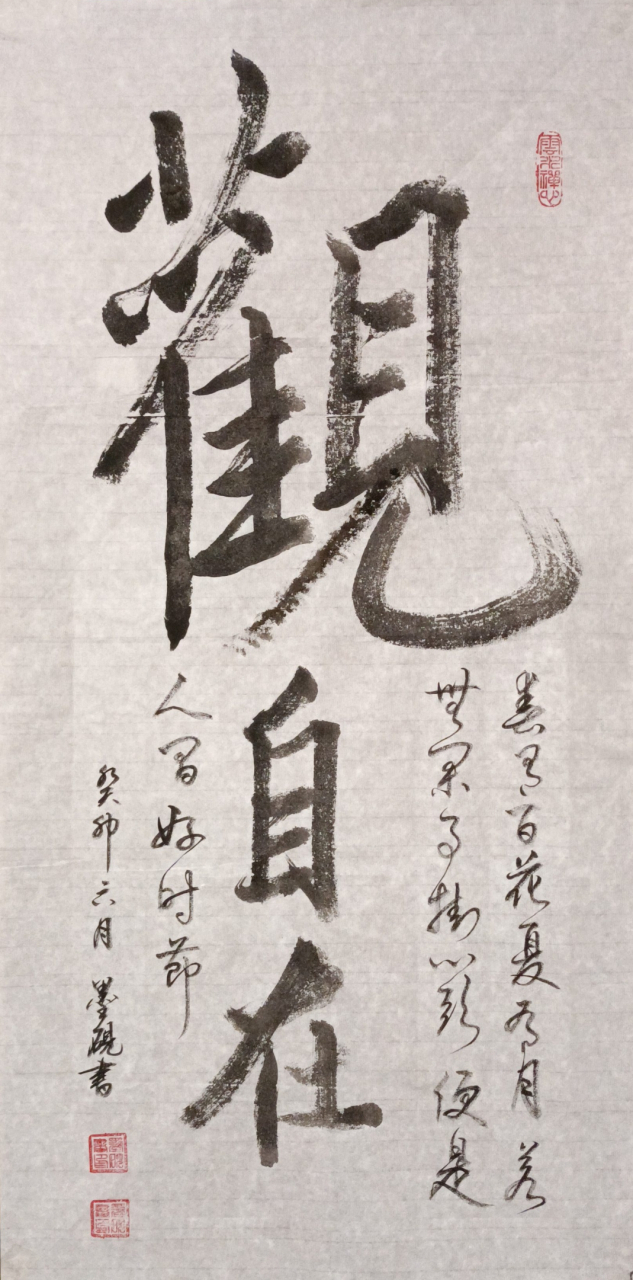 雲水禪心
觀自在
春有百花夏有月若
無閑事掛心頭便是
人間好时節
癸卯六月墨硯書